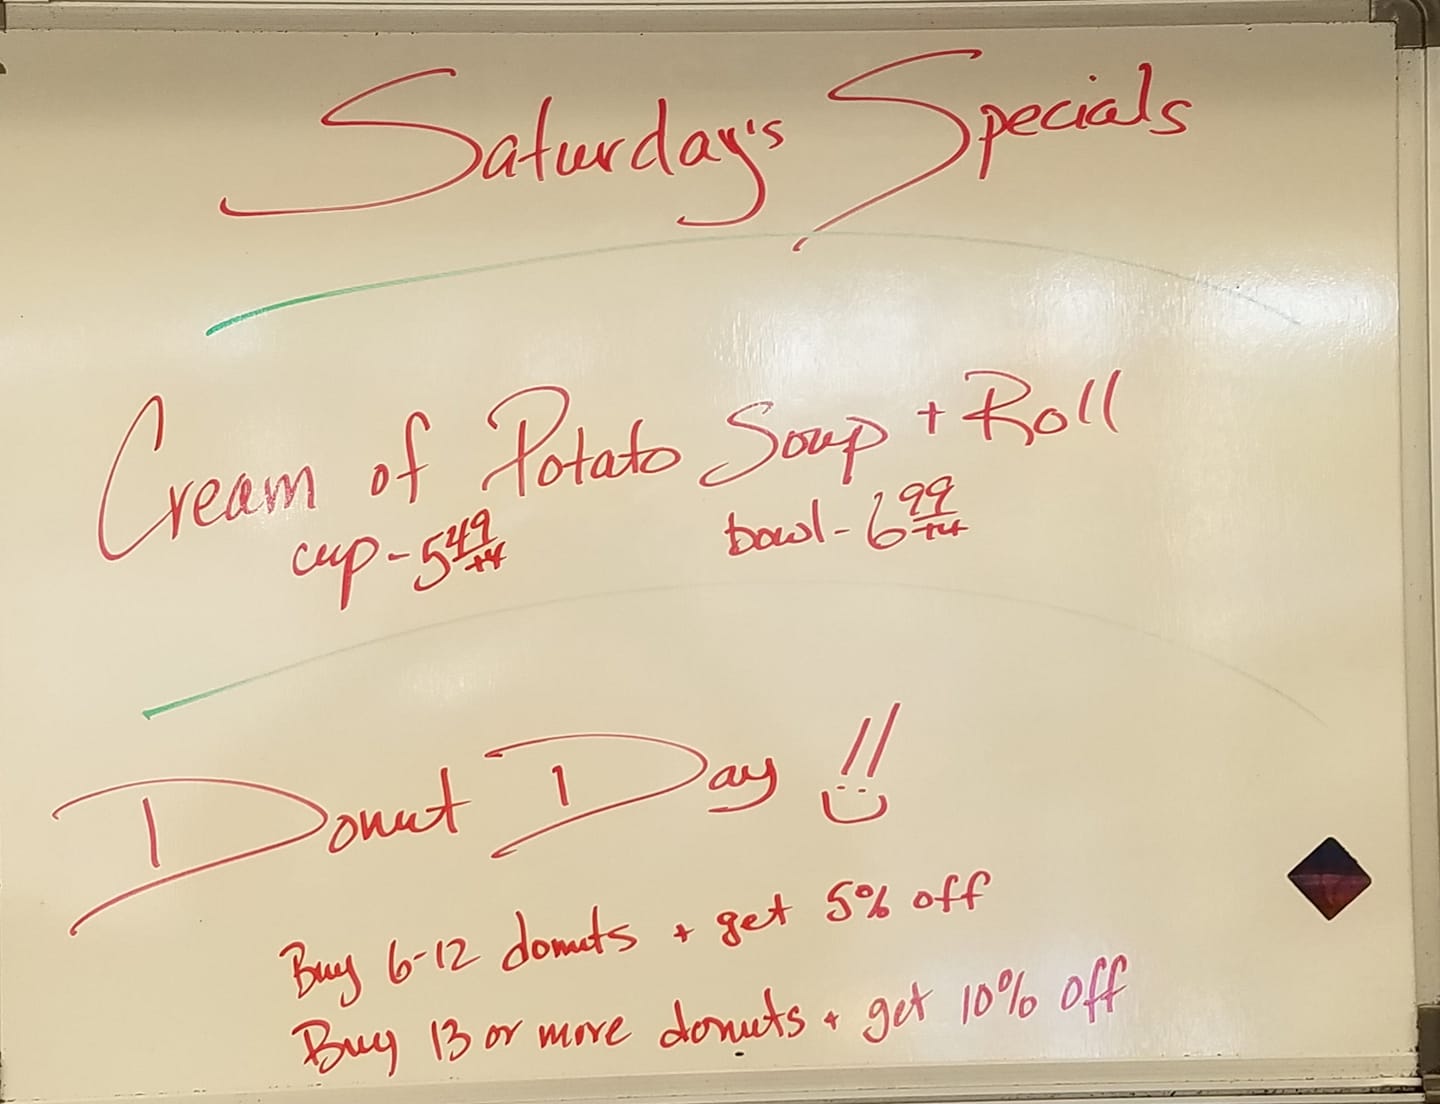 Saturday's Specials
Cream of Potato Soup + Roll
cup - 5 49 +t bowl - 6 99 +t
Donut Day !!
Buy 6-12 donuts + get 5% off
Buy 13 or more donuts + get 10% off